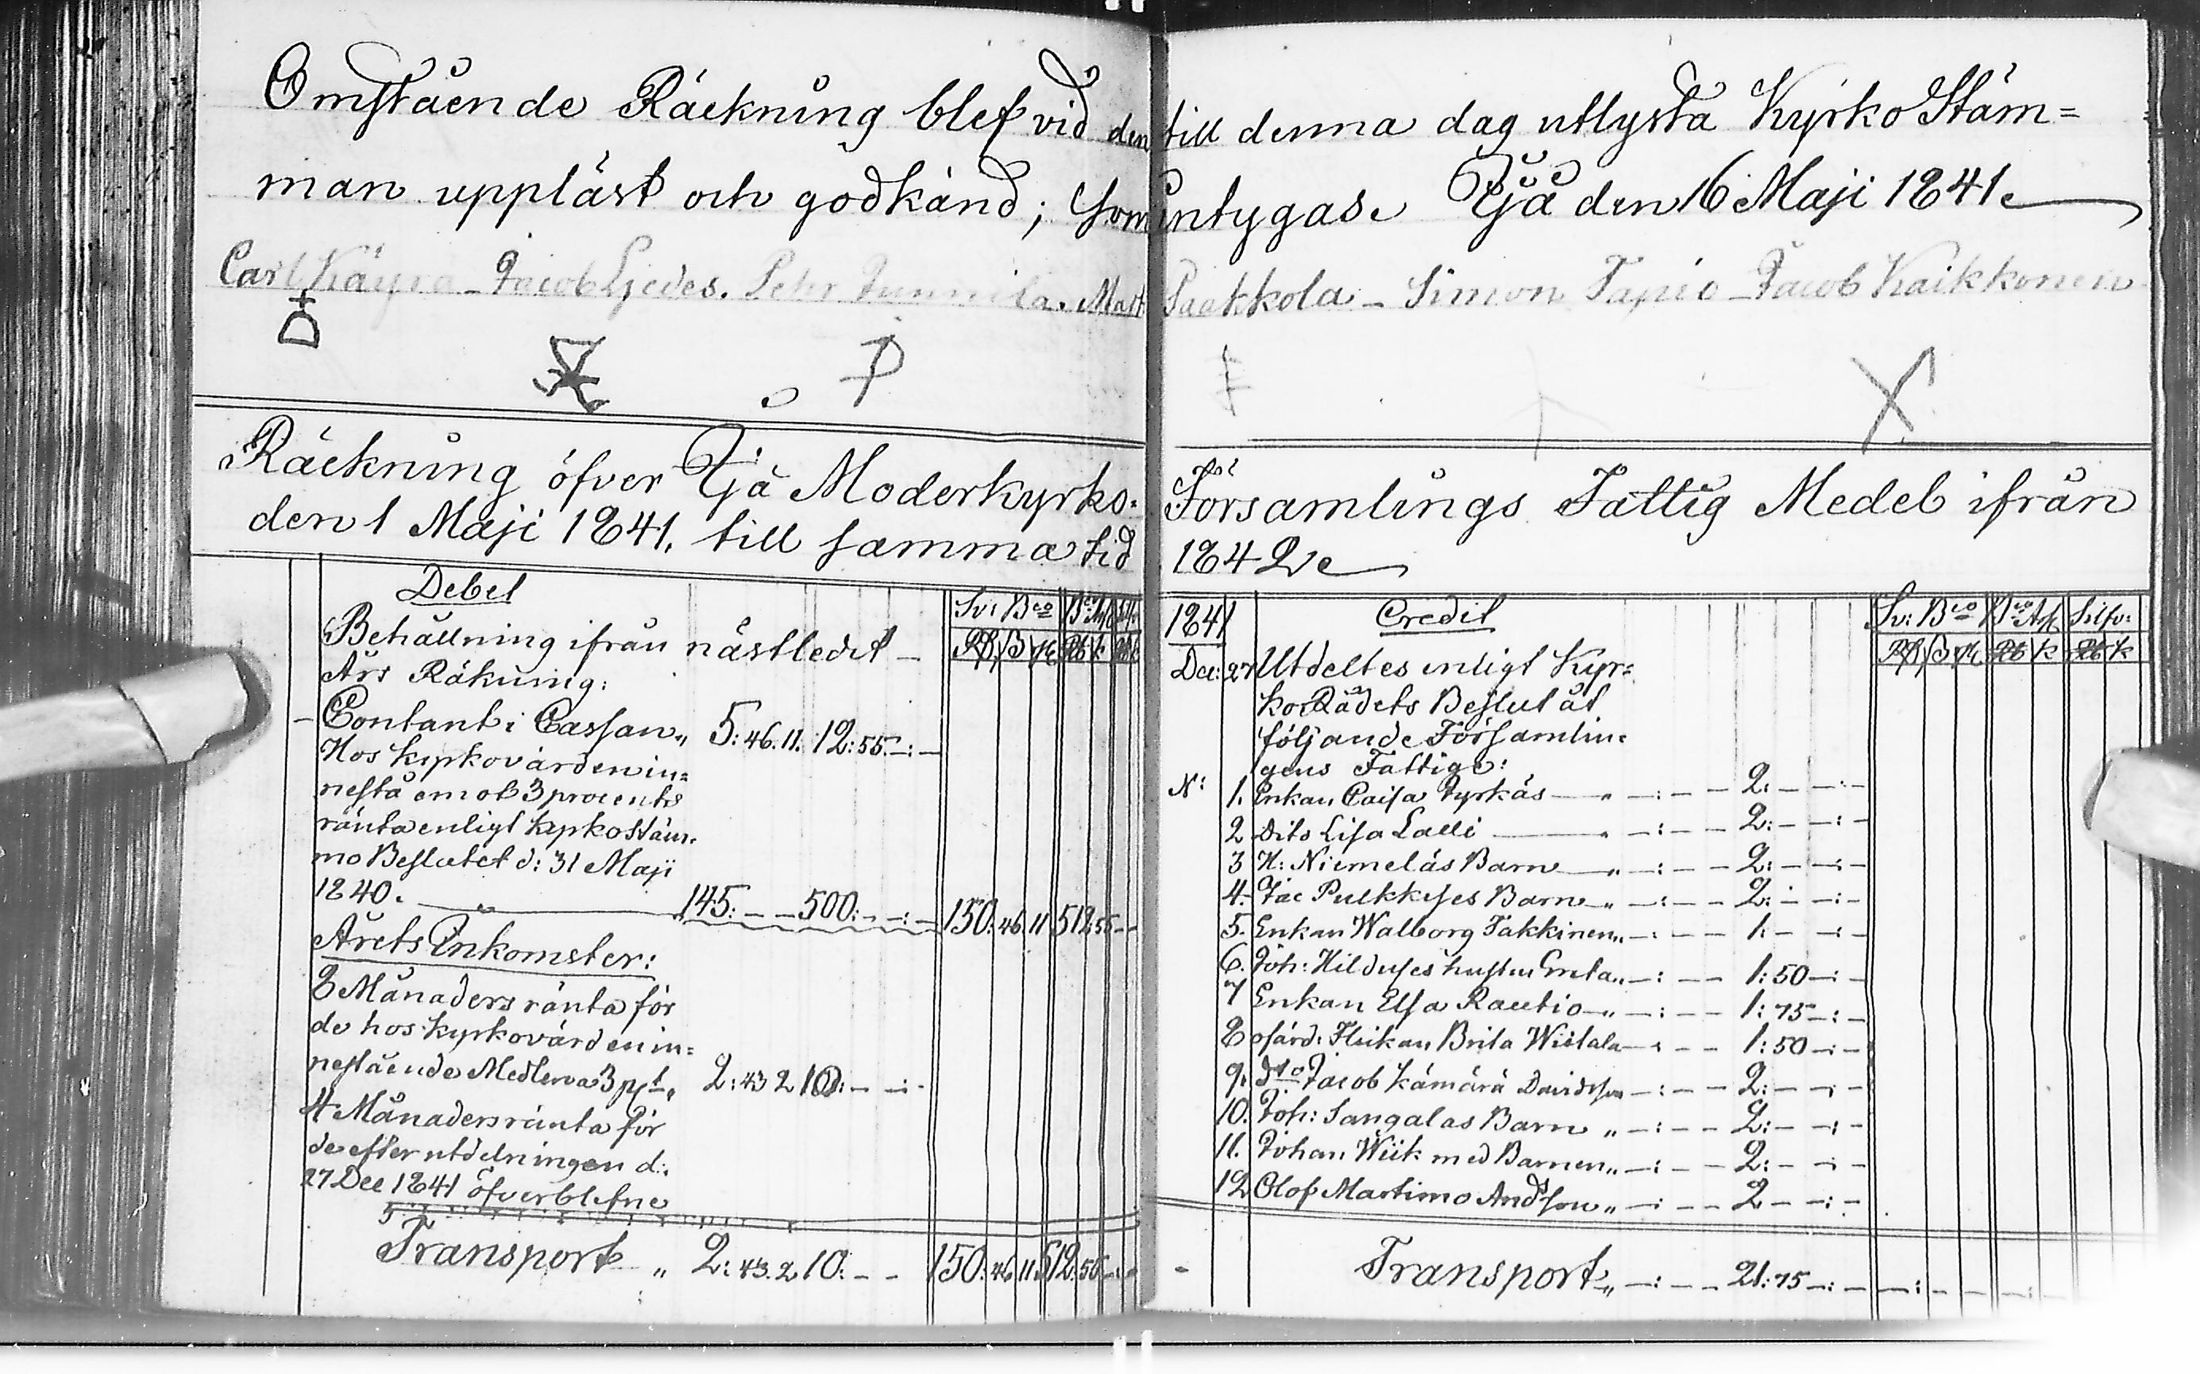 Omstående Räckning blef vid den till denna dag utlysta KyrkoStäm=
man uppläst och godkänd; som intygas. Ijå den 16 Maji 1841.
Carl Käyrä _ Jacob Ljedes. Pehr Junnila. Matt Paakkola _ Simon Tapio _ Jacob Kaikkonen
Räckning öfver Ijå Moderkyrko=
den 1 Maji 1841, till samma tid
Debet
Sv: Bco Bco Ass Silfv:
Behållning ifrån nästledit
Års Räkning:
Contant i Cassan „ 5:46.11. 12:55.–:–
Hos Kyrkovärden in=
nestå emot 3 procents
ränta enligt Kyrkostäm=
mo Beslutet d: 31 Maji
1840. „ 145:– – 500:– –:– 150:46 11 512 55 – –
Årets Inkomster:
8 Månaders ränta för
de hos Kyrkovärden in=
nestående Medlen a 3 pCt „ 2:43 2 10:– –:–
4 Månaders ränta för
de efter utdelningen d:
27 Dec 1841 öfverblefne
Transport „ 2:43.2 10:– – 150:46 11 512:55 – –
Församlings Fattig Medel ifrån
1842.
1841 Credit Sv: Bco Bco Ass Silfv:
Dec: 27 Utdeltes enligt Kyr=
koRådets Beslut åt
följande Församlin=
gens Fattige:
N: 1. Enkan Caisa Tyrkäs „ –:– – 2:– –:–
2 Dito Lisa Lalli „ –:– – 2:– –:–
3 H: Niemeläs Barn „ –:– – 2:– –:–
4. Jac Pulkkises Barn „ –:– – 2:– –:–
5. Enkan Walborg Takkinen „ –:– – 1:– –:–
6. Joh: Hilduses hustru Greta „ –:– – 1:50 –:–
7 Enkan Elsa Rautio „ –:– – 1:75 –:–
8 ofärd: Flickan Brita Wistala – – – 1:50 –:–
9. dto Jacob Kämärä Davidsson –:– – 2:– –:–
10. Joh: Sangalas Barn „ –:– – 2:– –:–
11. Johan Wiik med Barnen „ –:– – 2:– –:–
12 Olof Martimo Andsson „ –:– – 2 – –:–
Transport „ –:– – 21:75 –:– –:– – – –:–